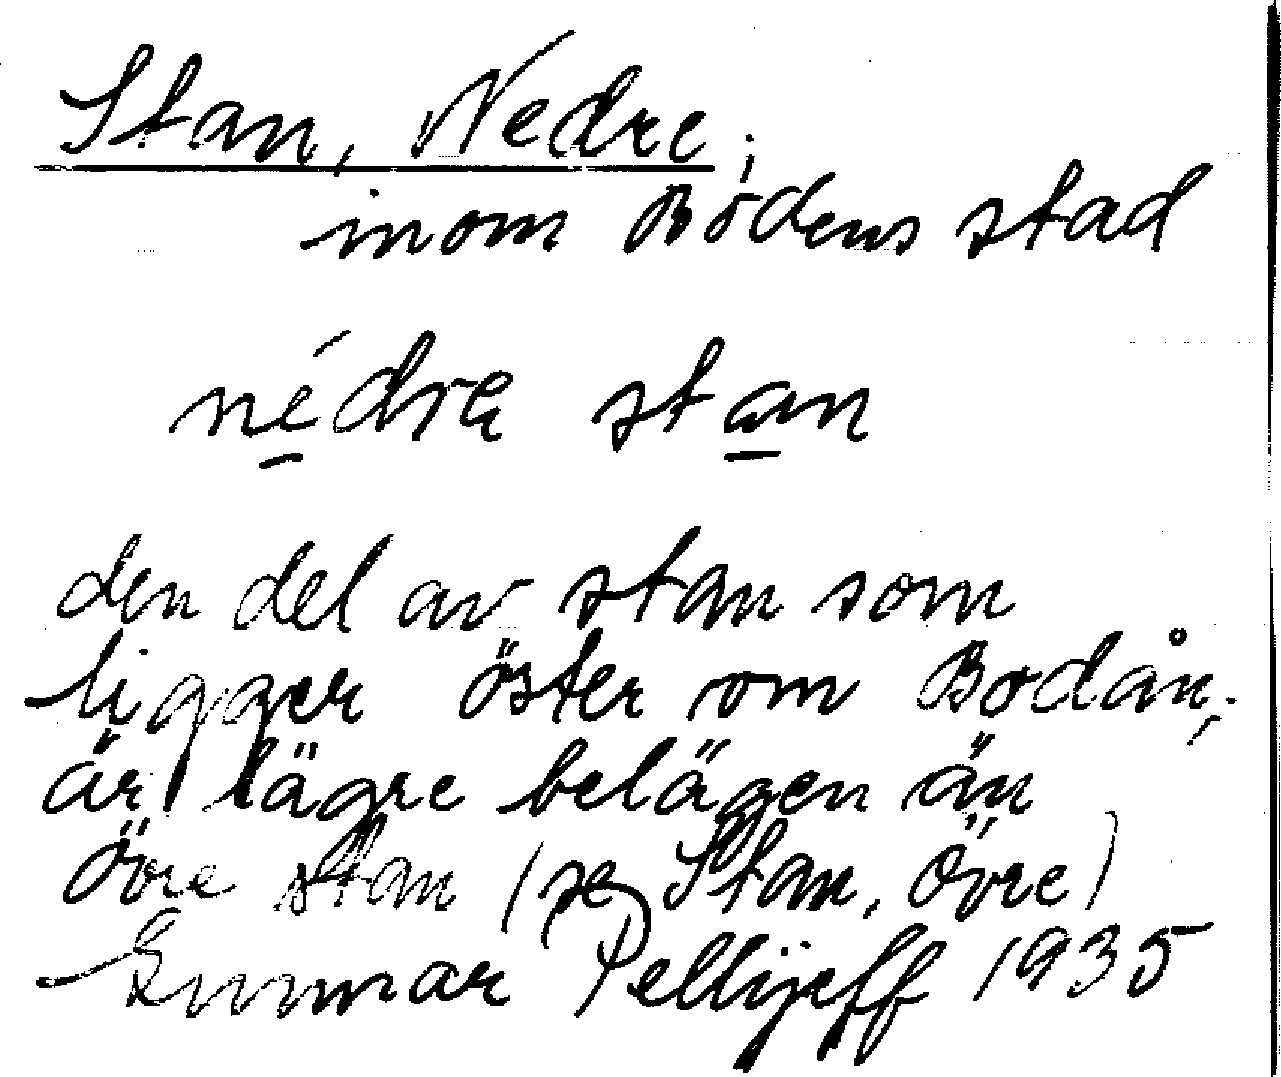 Stan, Nedre;
inom Bodens stad
nédra stan
den del av stan som
ligger öster om Bodån;
är lägre belägen än
övre stan (se Stan, Övre)
Gunnar Pellijeff 1935